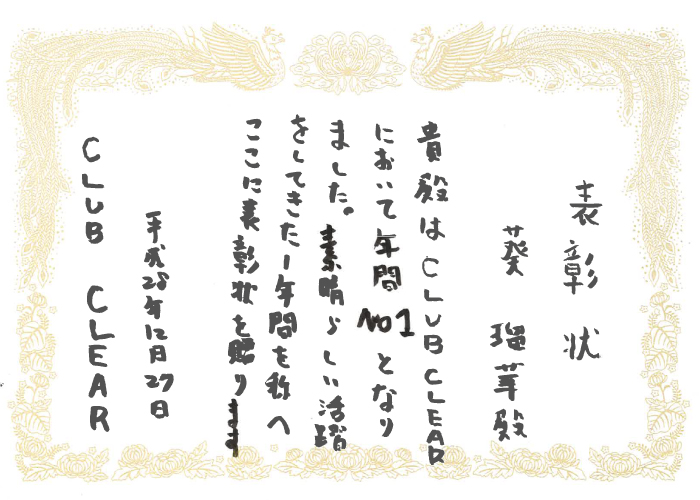 表彰状
葵 瑠華殿
貴殿はCLUB CLEAR
において年間No1となり
ました。素晴らしい活躍
をしてきた1年間を称へ
ここに表彰状を贈ります
平成28年12月27日
CLUB CLEAR